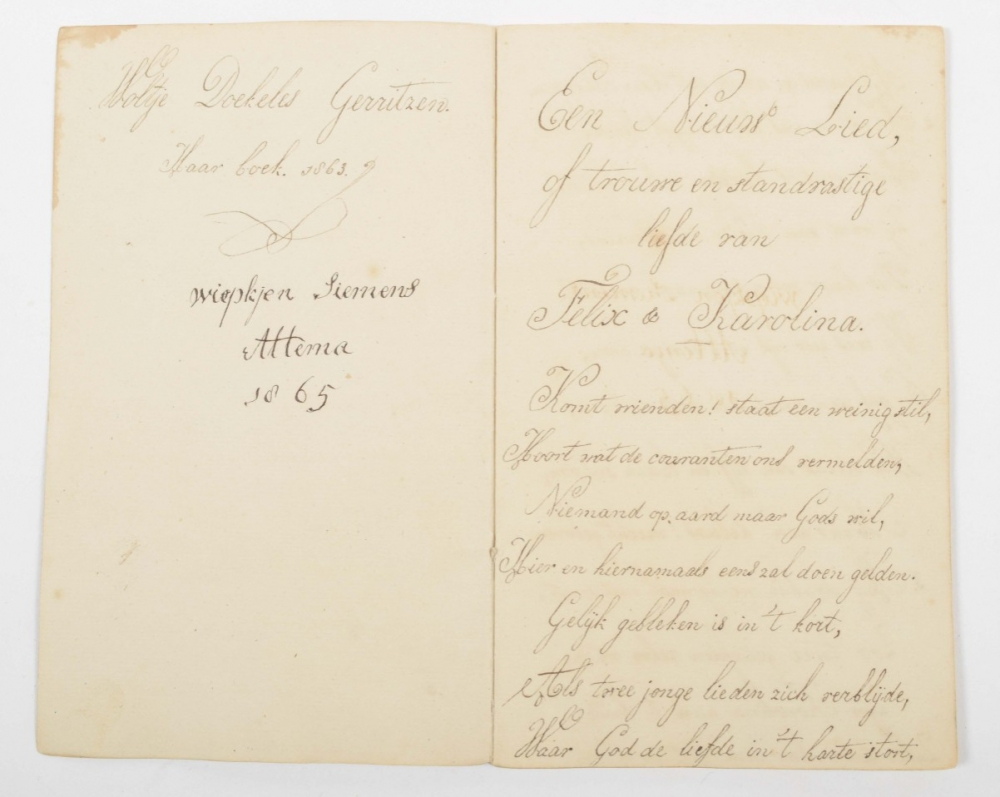 Woltje Doekeles Gerritzen.
Haar boek. 1863.
wiepkjen Siemens
Attema
1865
Een Nieuw Lied,
of trouwe en standvastige
liefde van
Felix & Karolina.
Komt vrienden! staat een weinig stil,
Hoort wat de couranten ons vermelden,
Niemand op aard maar Gods wil,
Hier en hiernamaals eens zal doen gelden.
Gelijk gebleken is in 't kort,
Als twee jonge lieden zich verblijde,
Waar God de liefde in 't harte stort,